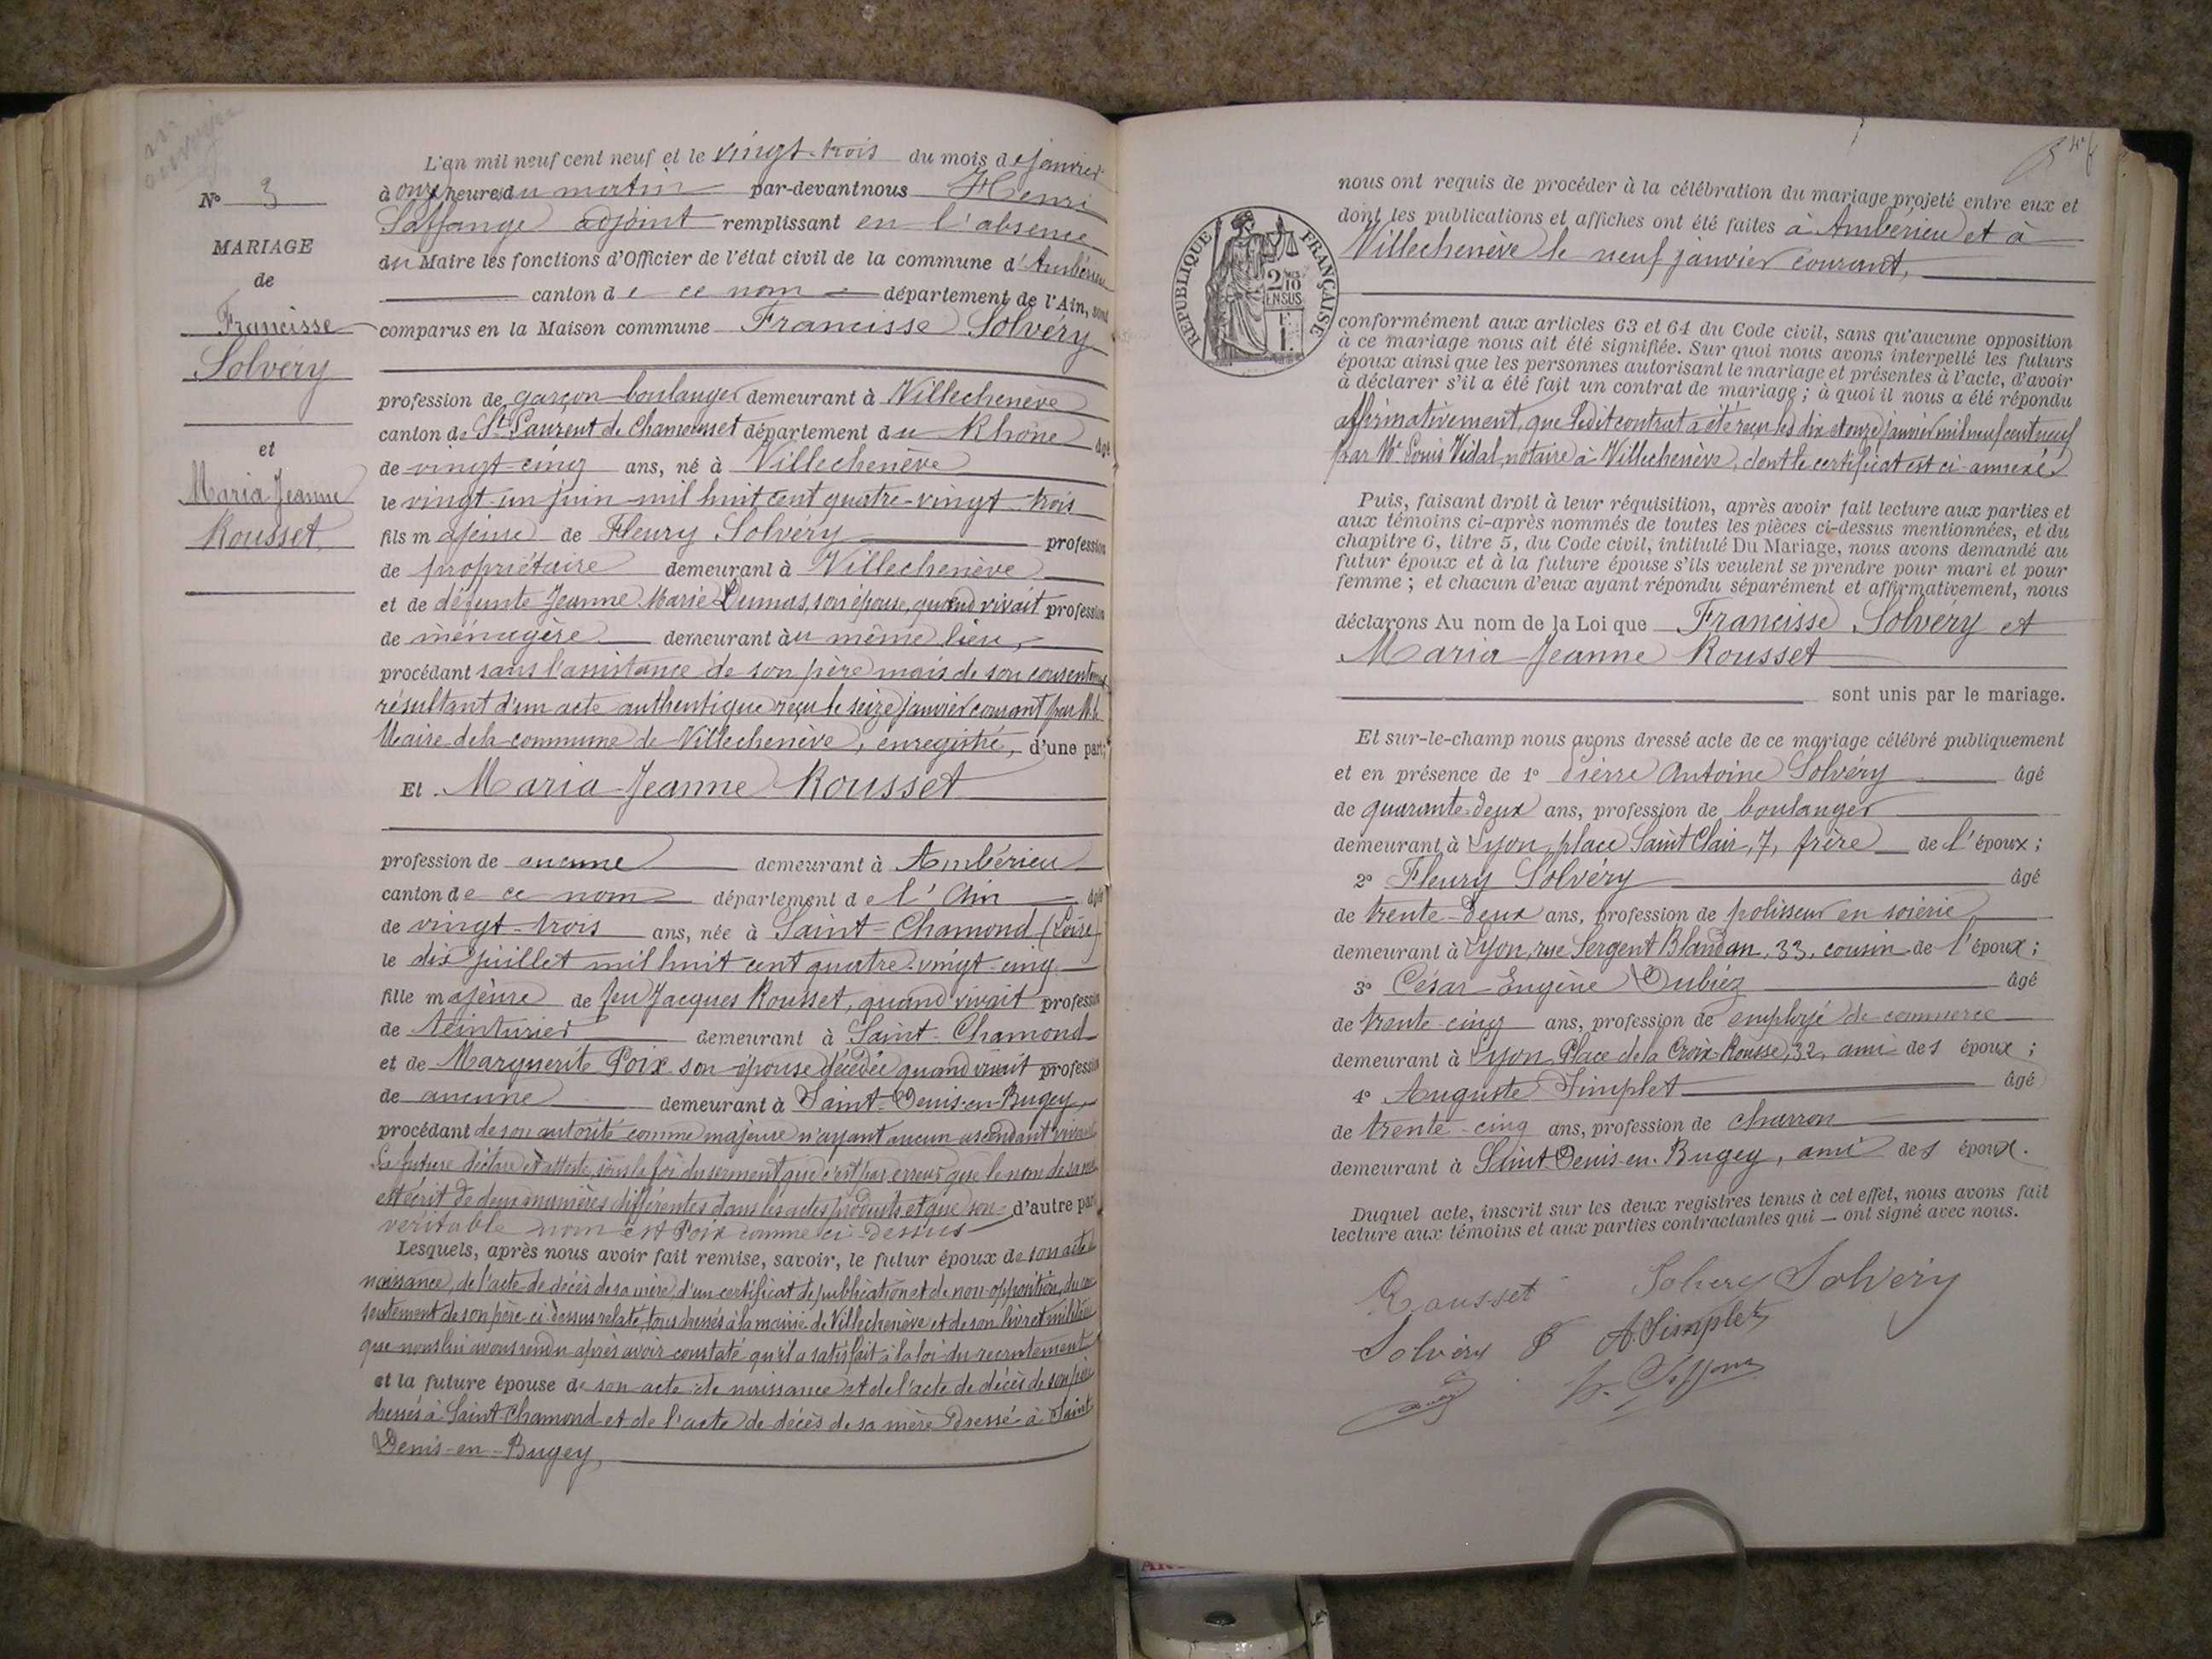 N° 3
MARIAGE
de
Francisse
Solvéry
et
Maria Jeanne
Rousset
L'an mil neuf cent neuf et le vingt-trois du mois de janvier
à onze heures du matin par-devant nous Henri
Saffange adjoint remplissant en l'absence
du Maire les fonctions d'Officier de l'état civil de la commune d'Ambérieu
canton de ce nom département de l'Ain, sont
comparus en la Maison commune Francisse Solvéry
profession de garçon boulanger demeurant à Villechenève
canton de St Laurent de Chamousset département du Rhône âgé
de vingt-cinq ans, né à Villechenève
le vingt-un juin mil huit cent quatre-vingt-trois
fils majeur de Fleury Solvéry profession
de propriétaire demeurant à Villechenève
et de défunte Jeanne Marie Dumas, son épouse, quand vivait profession
de ménagère demeurant au même lieu,
procédant sans l'assistance de son père mais de son consentement
résultant d'un acte authentique reçu le seize janvier courant par M. le
Maire de la commune de Villechenève, enregistré, d'une part;
Et Maria Jeanne Rousset
profession de aucune demeurant à Ambérieu
canton de ce nom département de l'Ain âgée
de vingt-trois ans, née à Saint-Chamond (Loire)
le dix juillet mil huit cent quatre-vingt-cinq
fille majeure de feu Jacques Rousset, quand vivait profession
de teinturier demeurant à Saint-Chamond
et de Marguerite Poix son épouse décédée quand vivait profession
de aucune demeurant à Saint-Denis-en-Bugey,
procédant de son autorité comme majeure n'ayant aucun ascendant vivant
La future déclare et atteste, sous la foi du serment que c'est par erreur que le nom de sa mère
est écrit de deux manières différentes dans les actes produits et que son d'autre part
véritable nom est Poix comme ci-dessus
Lesquels, après nous avoir fait remise, savoir, le futur époux de son acte de
naissance, de l'acte de décès de sa mère, d'un certificat de publication et de non-opposition, du con
sentement de son père ci-dessus relaté, tous dressés à la mairie de Villechenève et de son livret militaire
que nous lui avons rendu après avoir constaté qu'il a satisfait à la loi du recrutement
et la future épouse de son acte de naissance et de l'acte de décès de son père
dressés à Saint-Chamond et de l'acte de décès de sa mère dressé à Saint
Denis-en-Bugey,
nous ont requis de procéder à la célébration du mariage projeté entre eux et
dont les publications et affiches ont été faites à Ambérieu et à
Villechenève le neuf janvier courant,
RÉPUBLIQUE FRANÇAISE
2/10
EN SUS
conformément aux articles 63 et 64 du Code civil, sans qu'aucune opposition
à ce mariage nous ait été signifiée. Sur quoi nous avons interpellé les futurs
époux ainsi que les personnes autorisant le mariage et présentes à l'acte, d'avoir
à déclarer s'il a été fait un contrat de mariage ; à quoi il nous a été répondu
affirmativement, que ledit contrat a été reçu les dix et onze janvier mil neuf cent neuf
par Me Louis Vidal, notaire à Villechenève, dont le certificat est ci-annexé.
Puis, faisant droit à leur réquisition, après avoir fait lecture aux parties et
aux témoins ci-après nommés de toutes les pièces ci-dessus mentionnées, et du
chapitre 6, titre 5, du Code civil, intitulé Du Mariage, nous avons demandé au
futur époux et à la future épouse s'ils veulent se prendre pour mari et pour
femme ; et chacun d'eux ayant répondu séparément et affirmativement, nous
déclarons Au nom de la Loi que Francisse Solvéry et
Maria Jeanne Rousset
sont unis par le mariage.
Et sur-le-champ nous avons dressé acte de ce mariage célébré publiquement
et en présence de 1° Pierre Antoine Solvéry âgé
de quarante-deux ans, profession de boulanger
demeurant à Lyon, place Saint Clair, 7, frère de l'époux ;
2° Fleury Solvéry âgé
de trente-deux ans, profession de polisseur en soierie
demeurant à Lyon, rue Sergent Blandan, 33, cousin de l'époux ;
3° César Eugène Dubiez âgé
de trente-cinq ans, profession de employé de commerce
demeurant à Lyon Place de la Croix-Rousse, 32, ami des époux ;
4° Auguste Simplet âgé
de trente-cinq ans, profession de charron
demeurant à Saint Denis-en-Bugey, ami des époux.
Duquel acte, inscrit sur les deux registres tenus à cet effet, nous avons fait
lecture aux témoins et aux parties contractantes qui ont signé avec nous.
Rousset Solvery Solvéry
Solvéry F A. Simplet